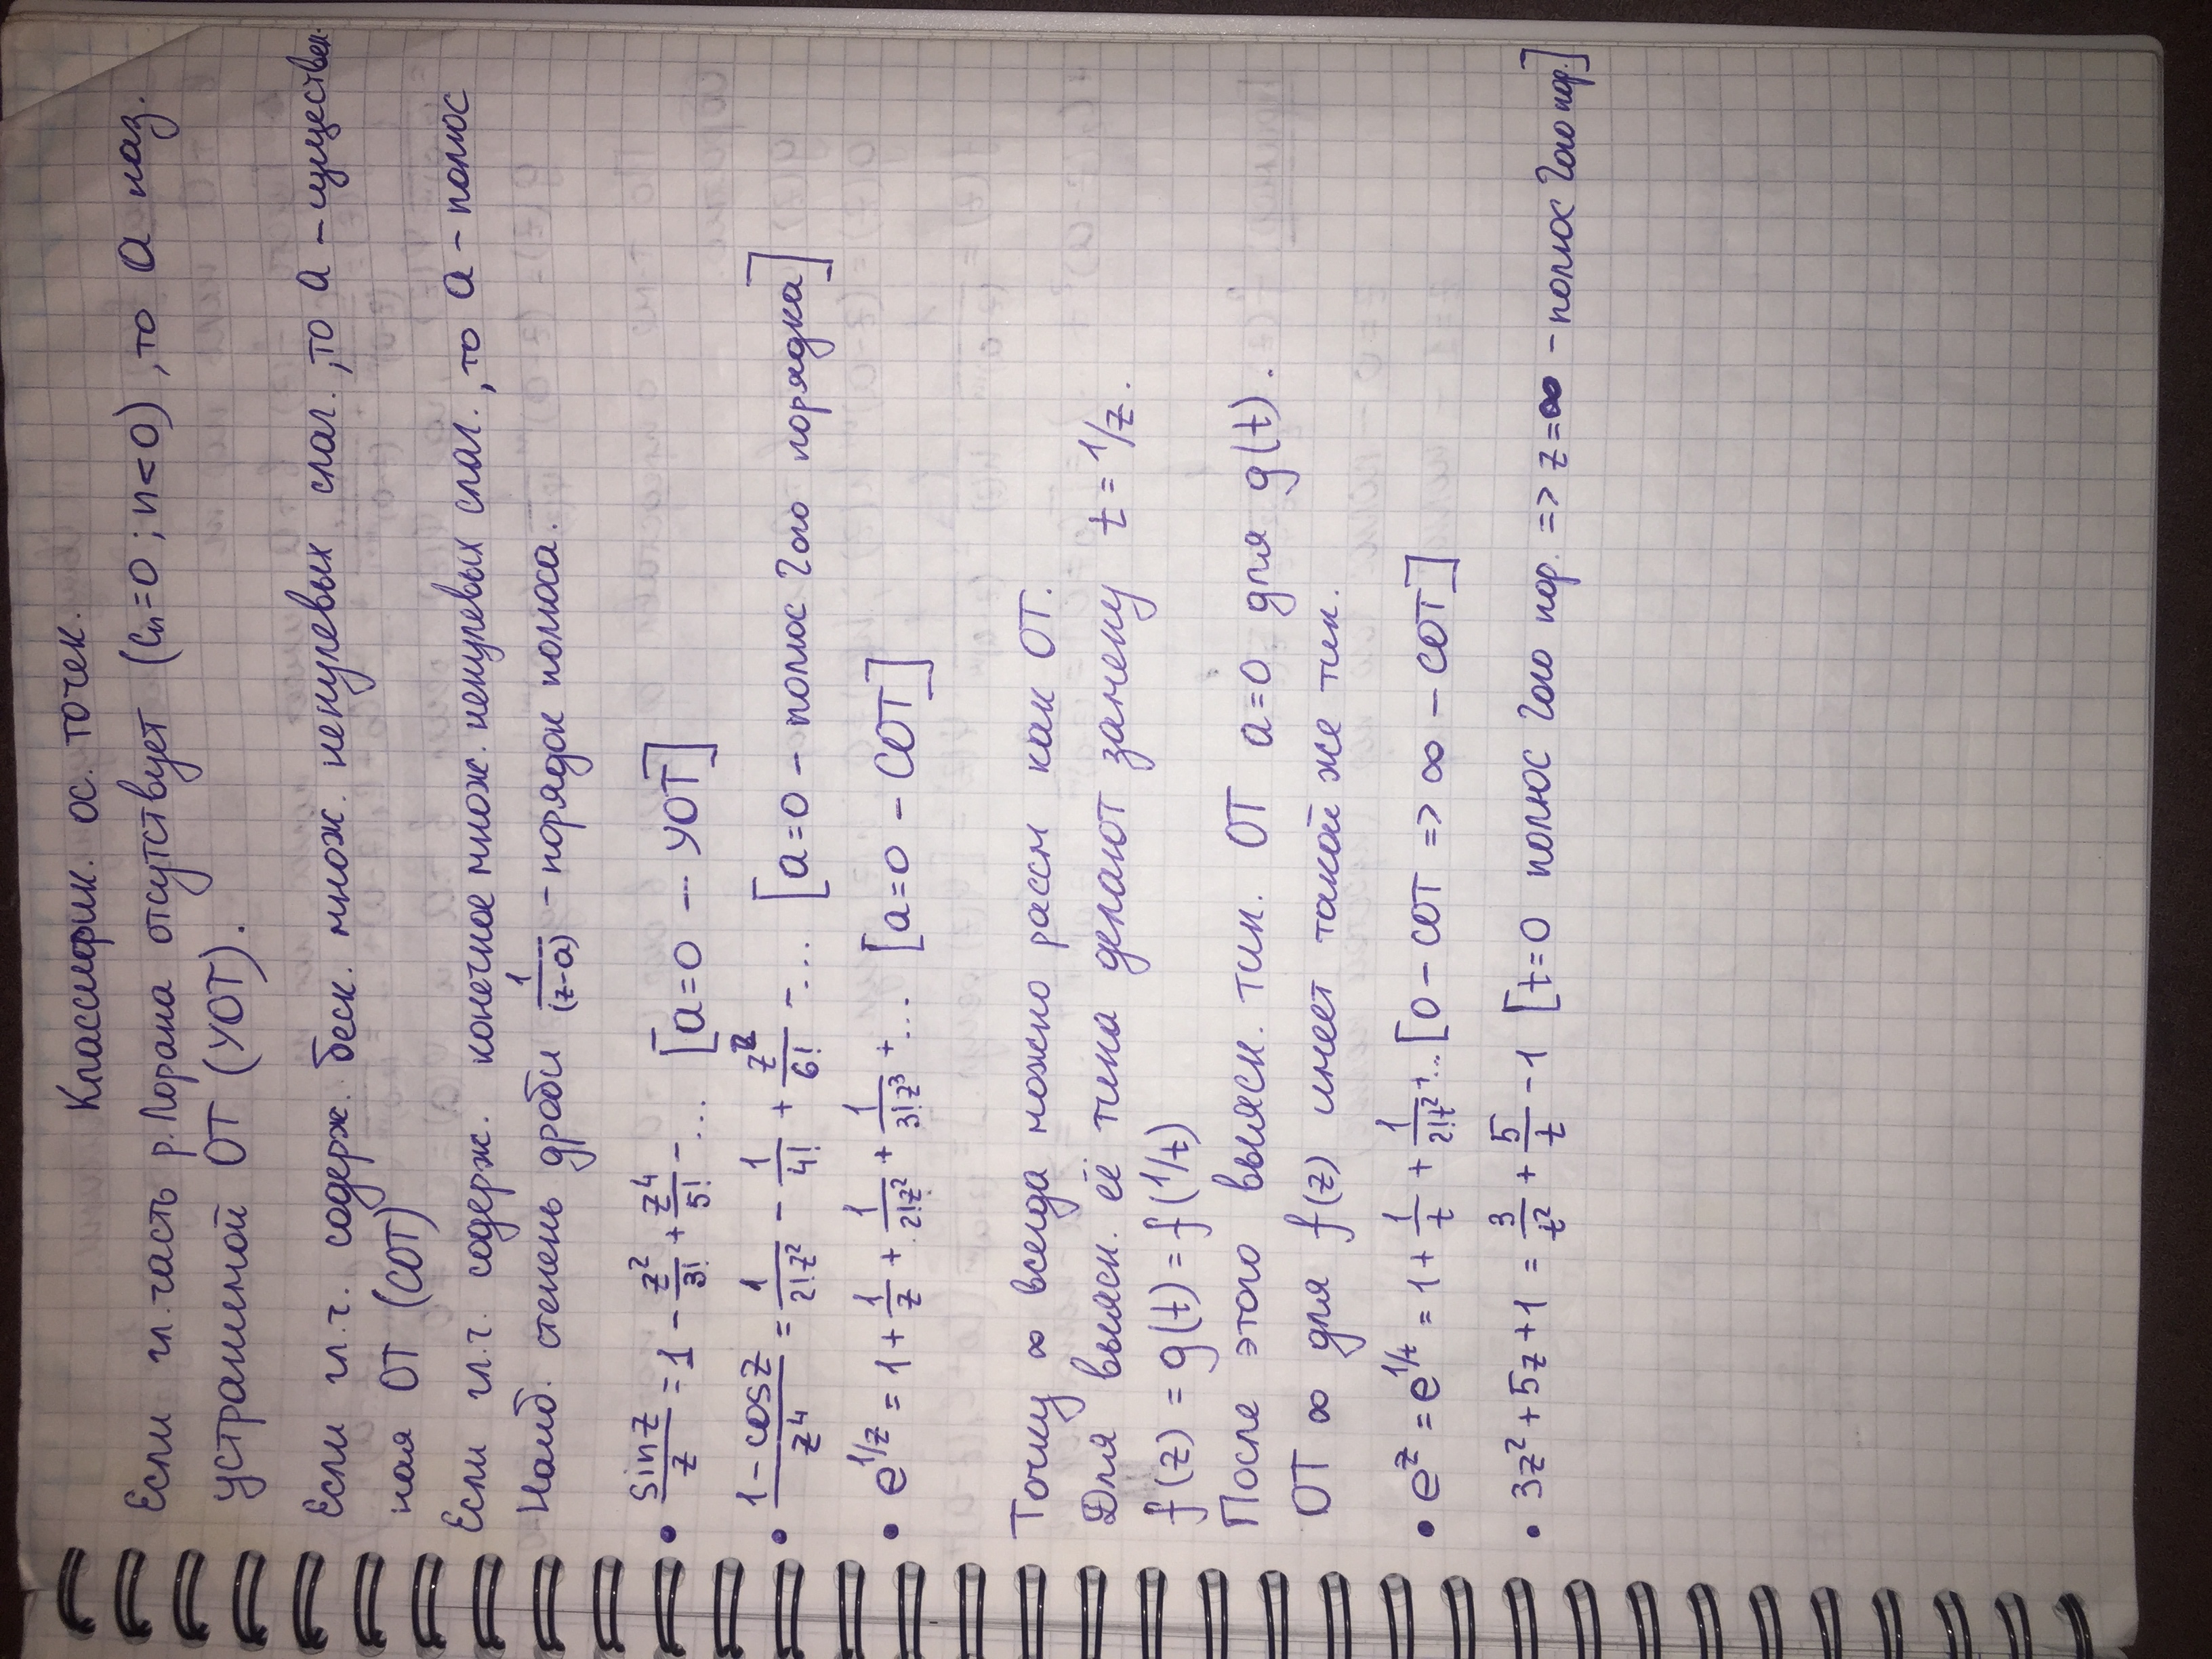 Классифик. ос. точек.
Если гл. часть р. Лорана отсутствует (Cₙ=0 ; n<0) , то a наз.
устранимой ОТ (УОТ).
Если гл.ч. содерж. беск. множ. ненулевых слаг. , то a – существен-
ная ОТ (СОТ)
Если гл.ч. содерж. конечное множ. ненулевых слаг. , то a – полюс
Наиб. степень дроби 1/(z-a) – порядок полюса.
• sinz/z = 1 - z²/3! + z⁴/5! - ... [a=0 — УОТ]
• (1-cosz)/z⁴ = 1/(2!z²) - 1/4! + z²/6! - ... [a=0 – полюс 2ого порядка]
• e^(1/z) = 1 + 1/z + 1/(2!z²) + 1/(3!z³) + ... [a=0 – СОТ]
Точку ∞ всегда можно рассм как ОТ.
Для выясн. её типа делают замену t = 1/z.
f(z) = g(t) = f(1/t)
После этого выясн. тип. ОТ a=0 для g(t).
ОТ ∞ для f(z) имеет такой же тип.
• e^z = e^(1/t) = 1 + 1/t + 1/(2!t²) + ... [0 – СОТ => ∞ – СОТ]
• 3z² + 5z + 1 = 3/t² + 5/t - 1 [t=0 полюс 2ого пор. => z=∞ – полюс 2ого пор.]